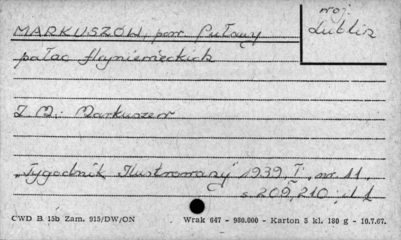 MARKUSZÓW, pow. Puławy
woj.
Lublin
pałac Hryniewieckich
Z M: Markuszew
"Tygodnik Ilustrowany" 1939, I, nr. 11,
s. 209, 210; il.
CWD B 15b Zam. 915/DW/ON Wrak 647 - 980.000 - Karton 5 kl. 180 g - 10.7.67.